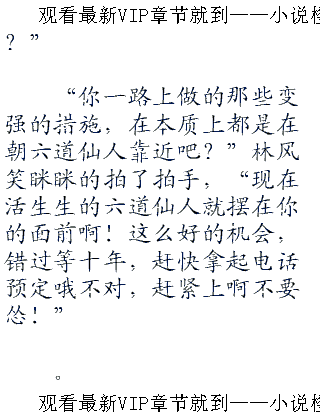 观看最新VIP章节就到——小说
？”
“你一路上做的那些变
强的措施，在本质上都是在
朝六道仙人靠近吧？”林风
笑眯眯的拍了拍手，“现在
活生生的六道仙人就摆在你
的面前啊！这么好的机会，
错过等十年，赶快拿起电话
预定哦不对，赶紧上啊不要
怂！”
。
观看最新VIP章节就到——小说